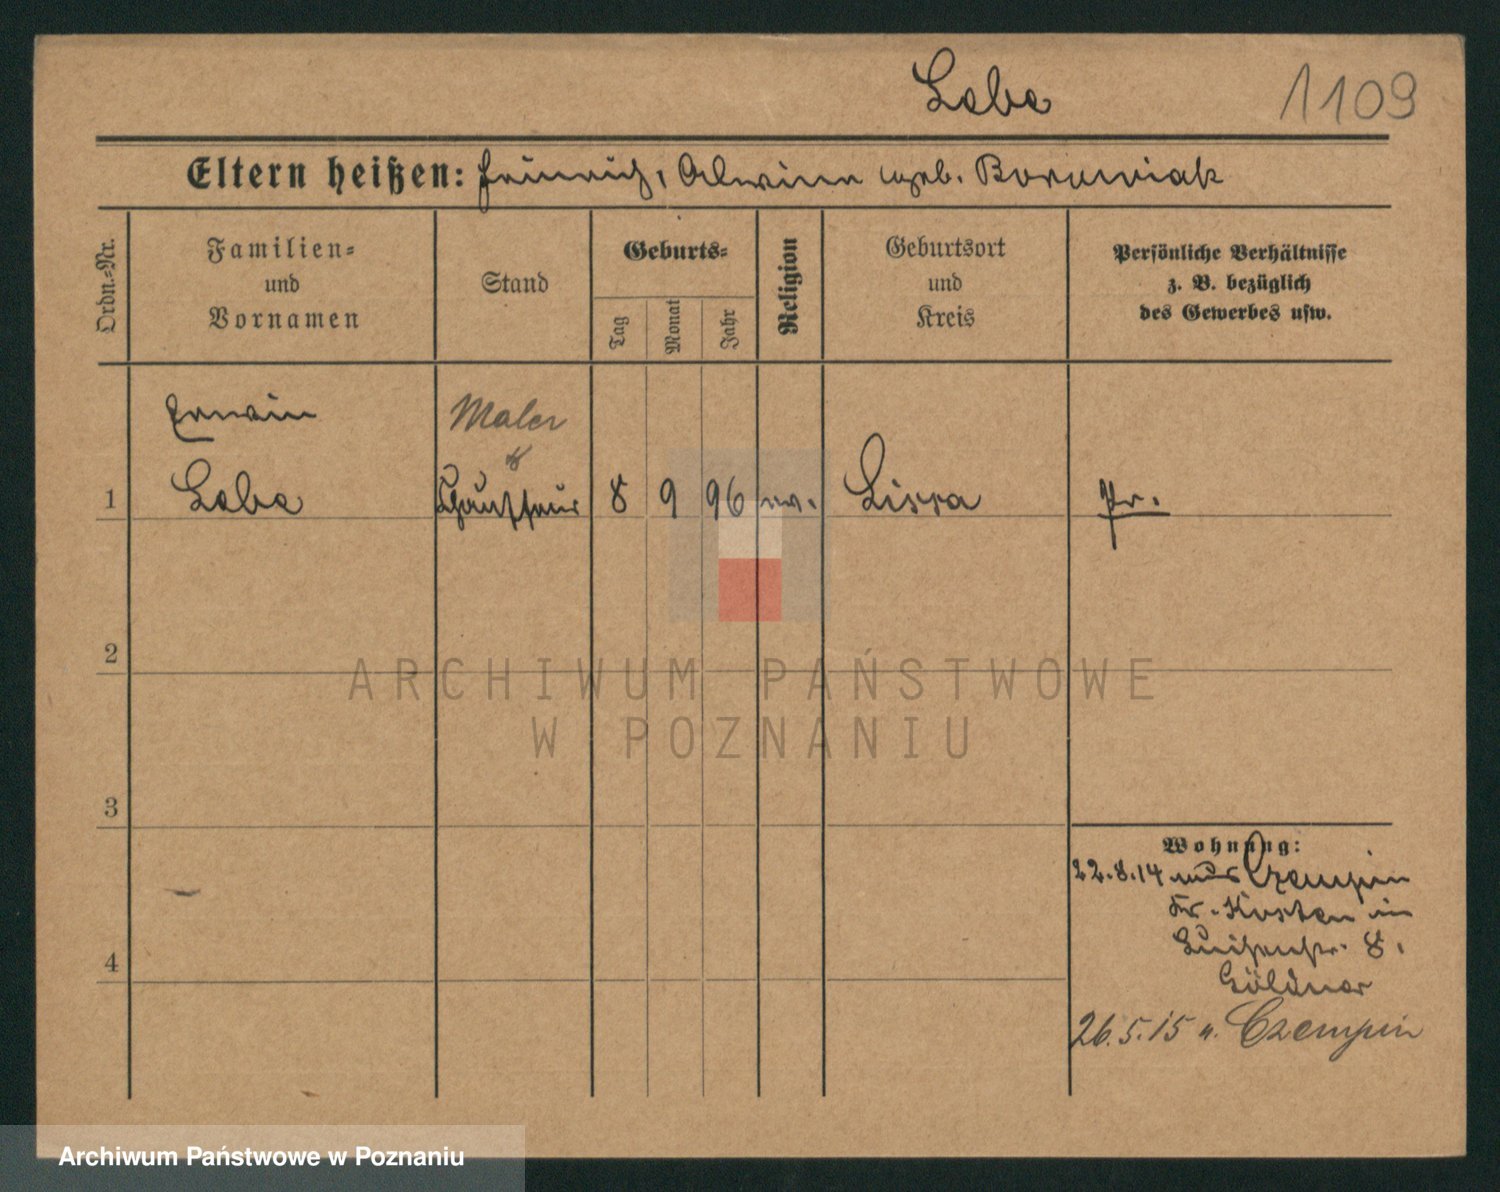 Labe 1109
Eltern heißen: Heinrich, Alwine geb. Borowiak
Ordn.-Nr.
Familien-
und
Vornamen
Stand
Geburts-
Tag
Monat
Jahr
Religion
Geburtsort
und
Kreis
Persönliche Verhältnisse
z. B. bezüglich
des Gewerbes usw.
Erwin
Maler
1 Labe Chauffeur 8 9 96 ev. Lissa Pr.
2
3
4
Wohnung:
22.8.14 Czempin
Kr. Kosten in
Luisenstr. 8,
26.5.15 n. Czempin
ARCHIWUM PAŃSTWOWE
W POZNANIU
Archiwum Państwowe w Poznaniu